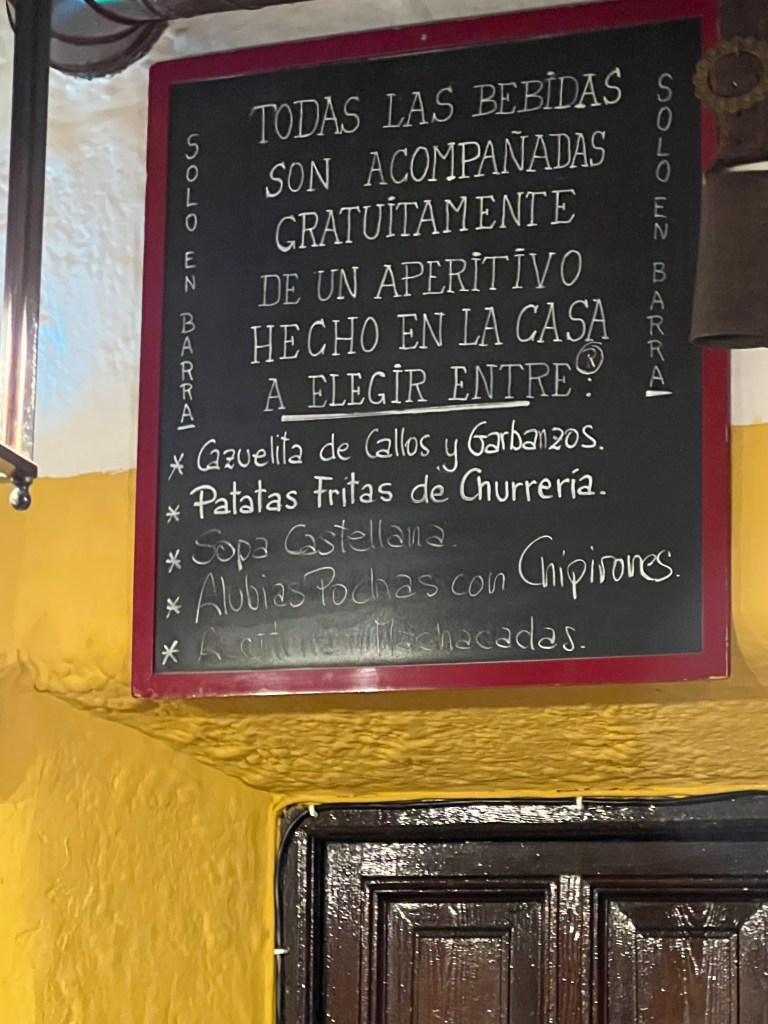 TODAS LAS BEBIDAS
SON ACOMPAÑADAS
GRATUITAMENTE
DE UN APERITIVO
HECHO EN LA CASA
A ELEGIR ENTRE:
®
SOLO EN BARRA
SOLO EN BARRA
* Cazuelita de Callos y Garbanzos.
* Patatas Fritas de Churrería.
* Sopa Castellana.
* Alubias Pochas con Chipirones.
* Aceitunas Machacadas.